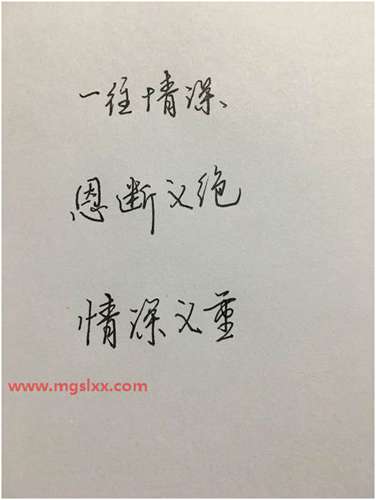 一往情深、
恩断义绝
情深义重
www.mgslxx.com